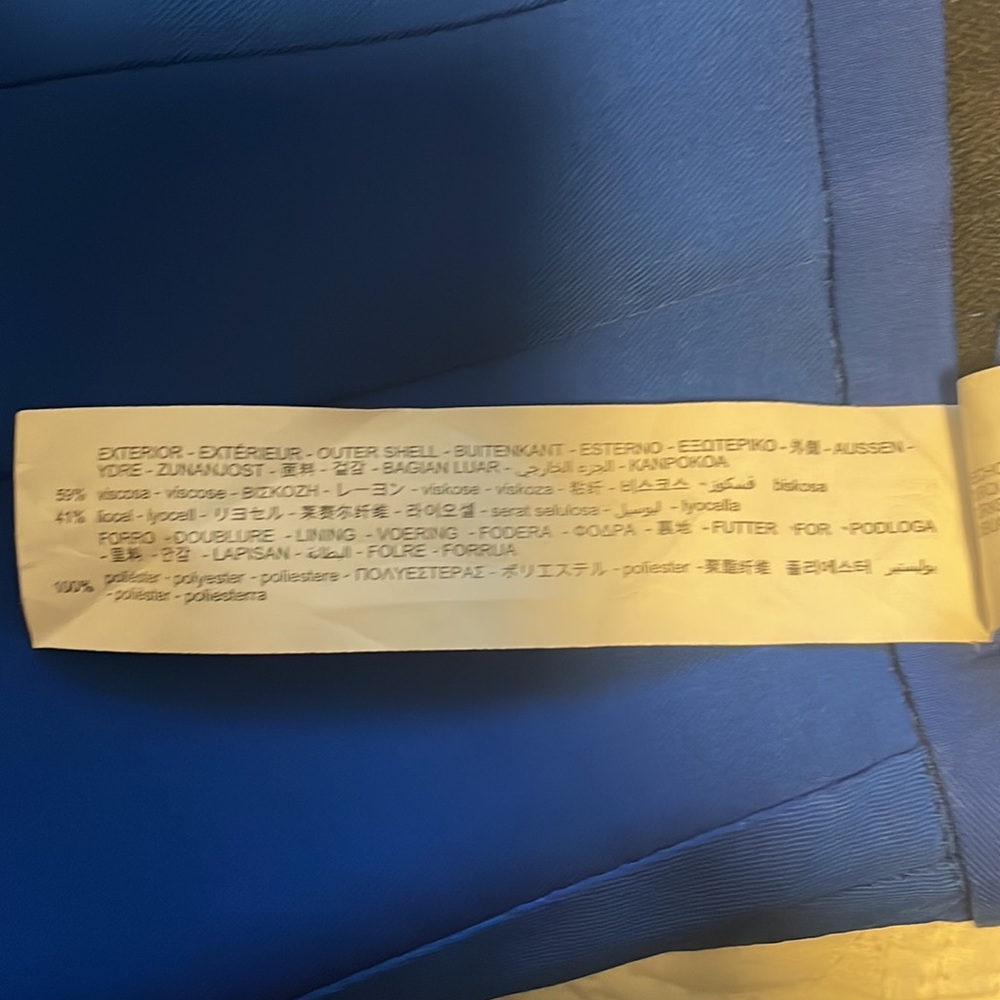 EXTERIOR - EXTÉRIEUR - OUTER SHELL - BUITENKANT - ESTERNO - ΕΞΩΤΕΡΙΚΟ - 外側 - AUSSEN -
YDRE - ZUNANJOST - 面料 - 겉감 - BAGIAN LUAR - الجزء الخارجي - KANPOKOA
59% viscosa - viscose - ΒΙΣΚΟΖΗ - レーヨン - viskose - viskoza - 粘纤 - 비스코스 - فسكوز biskosa
41% liocel - lyocell - リヨセル - 莱赛尔纤维 - 라이오셀 - serat selulosa - ليوسيل - lyocella
FORRO - DOUBLURE - LINING - VOERING - FODERA - ΦΟΔΡΑ - 裏地 - FUTTER - FOR - PODLOGA
- 里料 - 안감 - LAPISAN - البطانة - FOLRE - FORRUA
100% poliéster - polyester - poliestere - ΠΟΛΥΕΣΤΕΡΑΣ - ポリエステル - poliester - 聚酯纤维 폴리에스터 بوليستر
- polièster - poliesterra